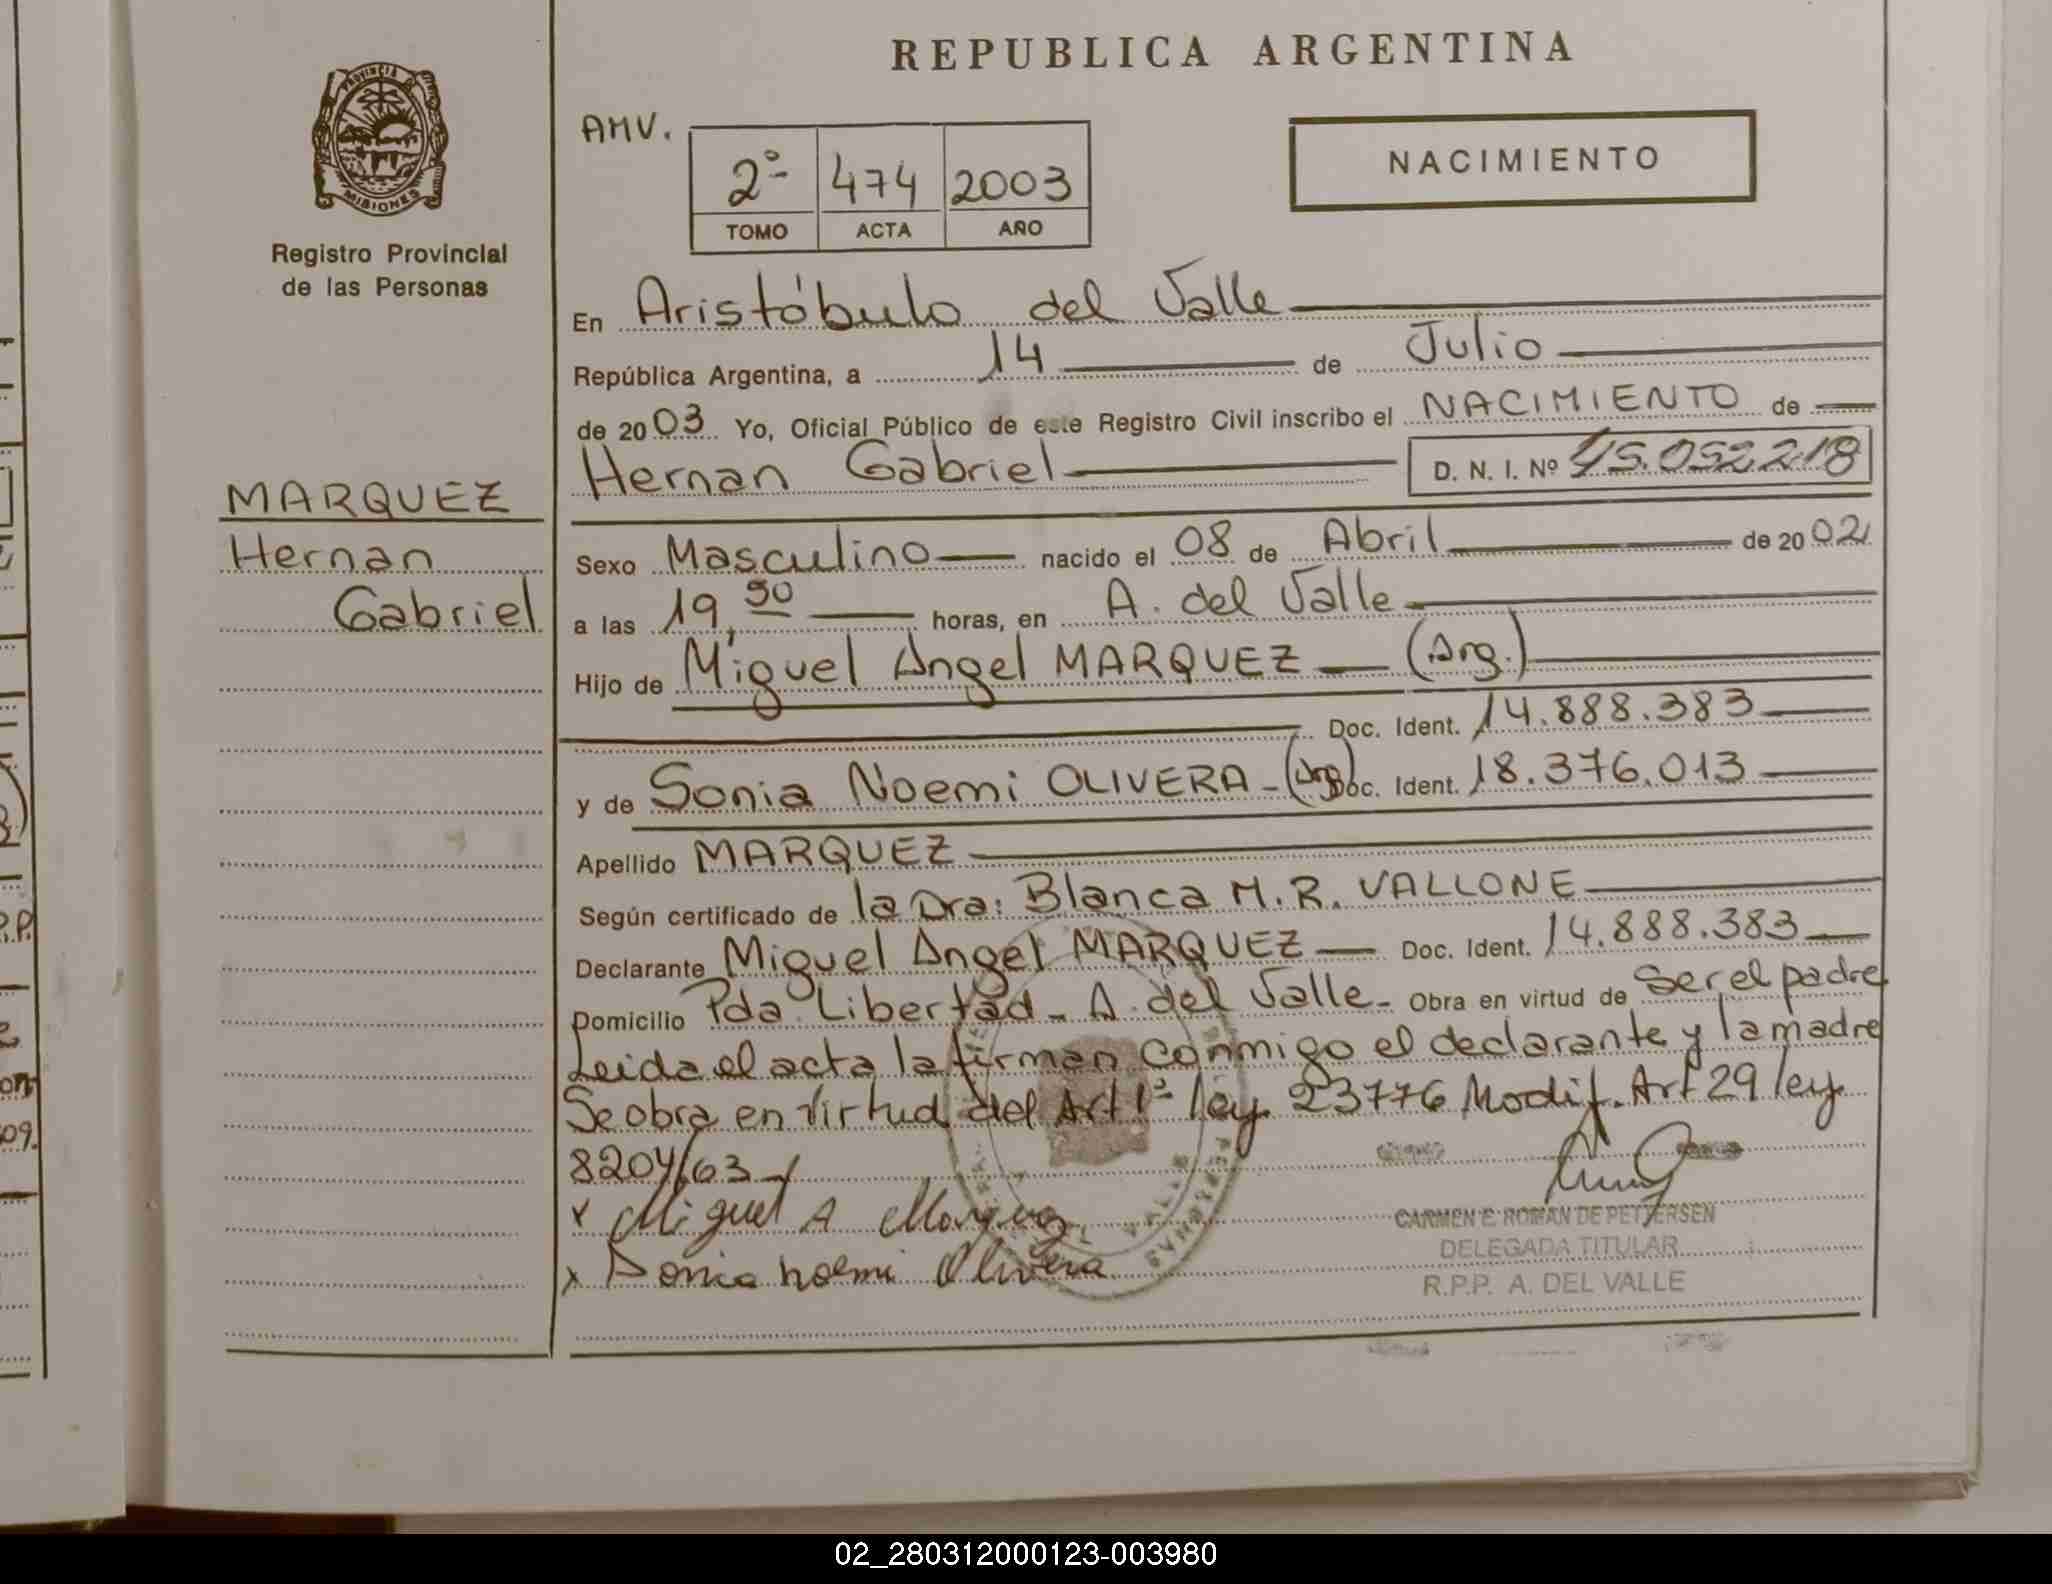 REPUBLICA ARGENTINA
PROVINCIA DE
MISIONES
Registro Provincial
de las Personas
AMV.
2º 474 2003
TOMO ACTA AÑO
NACIMIENTO
En Aristóbulo del Valle
República Argentina, a 14 de Julio
de 2003 Yo, Oficial Público de este Registro Civil inscribo el NACIMIENTO de
Hernan Gabriel D. N. I. Nº 45.052.218
MARQUEZ
Hernan
Gabriel
Sexo Masculino nacido el 08 de Abril de 2002
a las 19,50 horas, en A. del Valle
Hijo de Miguel Angel MARQUEZ (Arg.)
Doc. Ident. 14.888.383
y de Sonia Noemi OLIVERA - (Arg) Doc. Ident. 18.376.013
Apellido MARQUEZ
Según certificado de la Dra: Blanca M. R. VALLONE
Declarante Miguel Angel MARQUEZ Doc. Ident. 14.888.383
Domicilio Pda. Libertad - A. del Valle - Obra en virtud de ser el padre
Leida el acta la firman conmigo el declarante y la madre
Se obra en virtud del Art 1º ley 23776 Modif. Art 29 ley
8204/63 -/
x Miguel A Marquez
x Sonia noemi Olivera
CARMEN E. ROMAN DE PETTERSEN
DELEGADA TITULAR
R.P.P. A. DEL VALLE
02_280312000123-003980